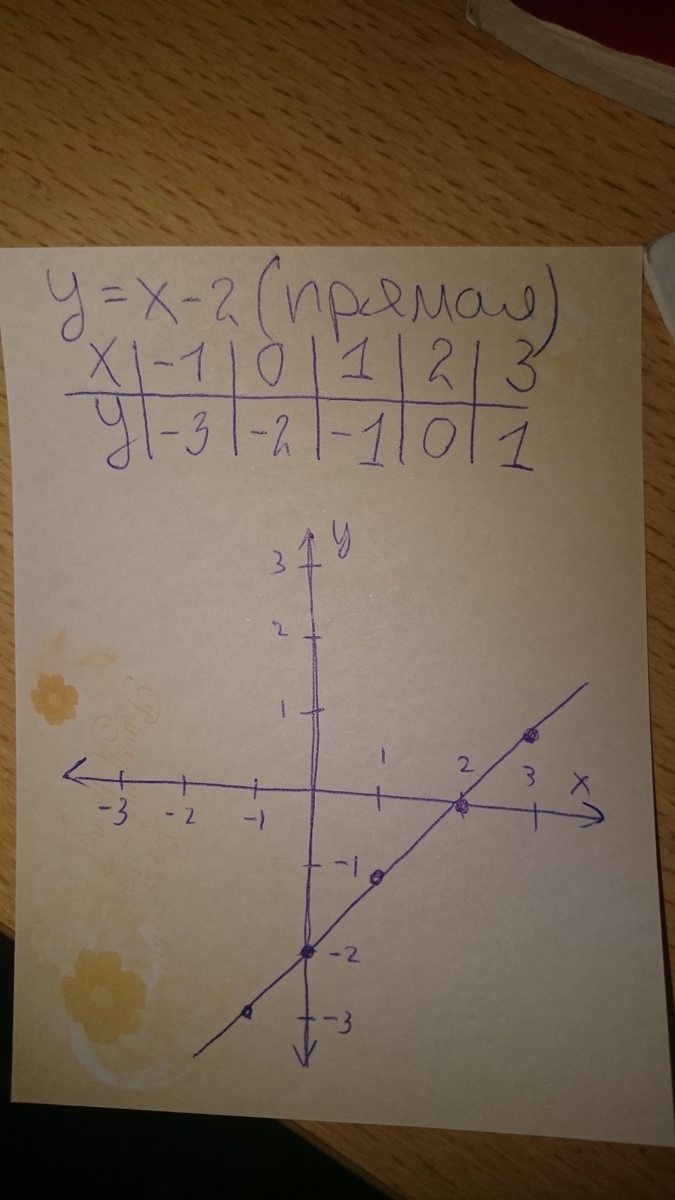 y=x-2 (прямая)
x -1 0 1 2 3
y -3 -2 -1 0 1
y
3
2
1
1 2 3 x
-3 -2 -1
-1
-2
-3